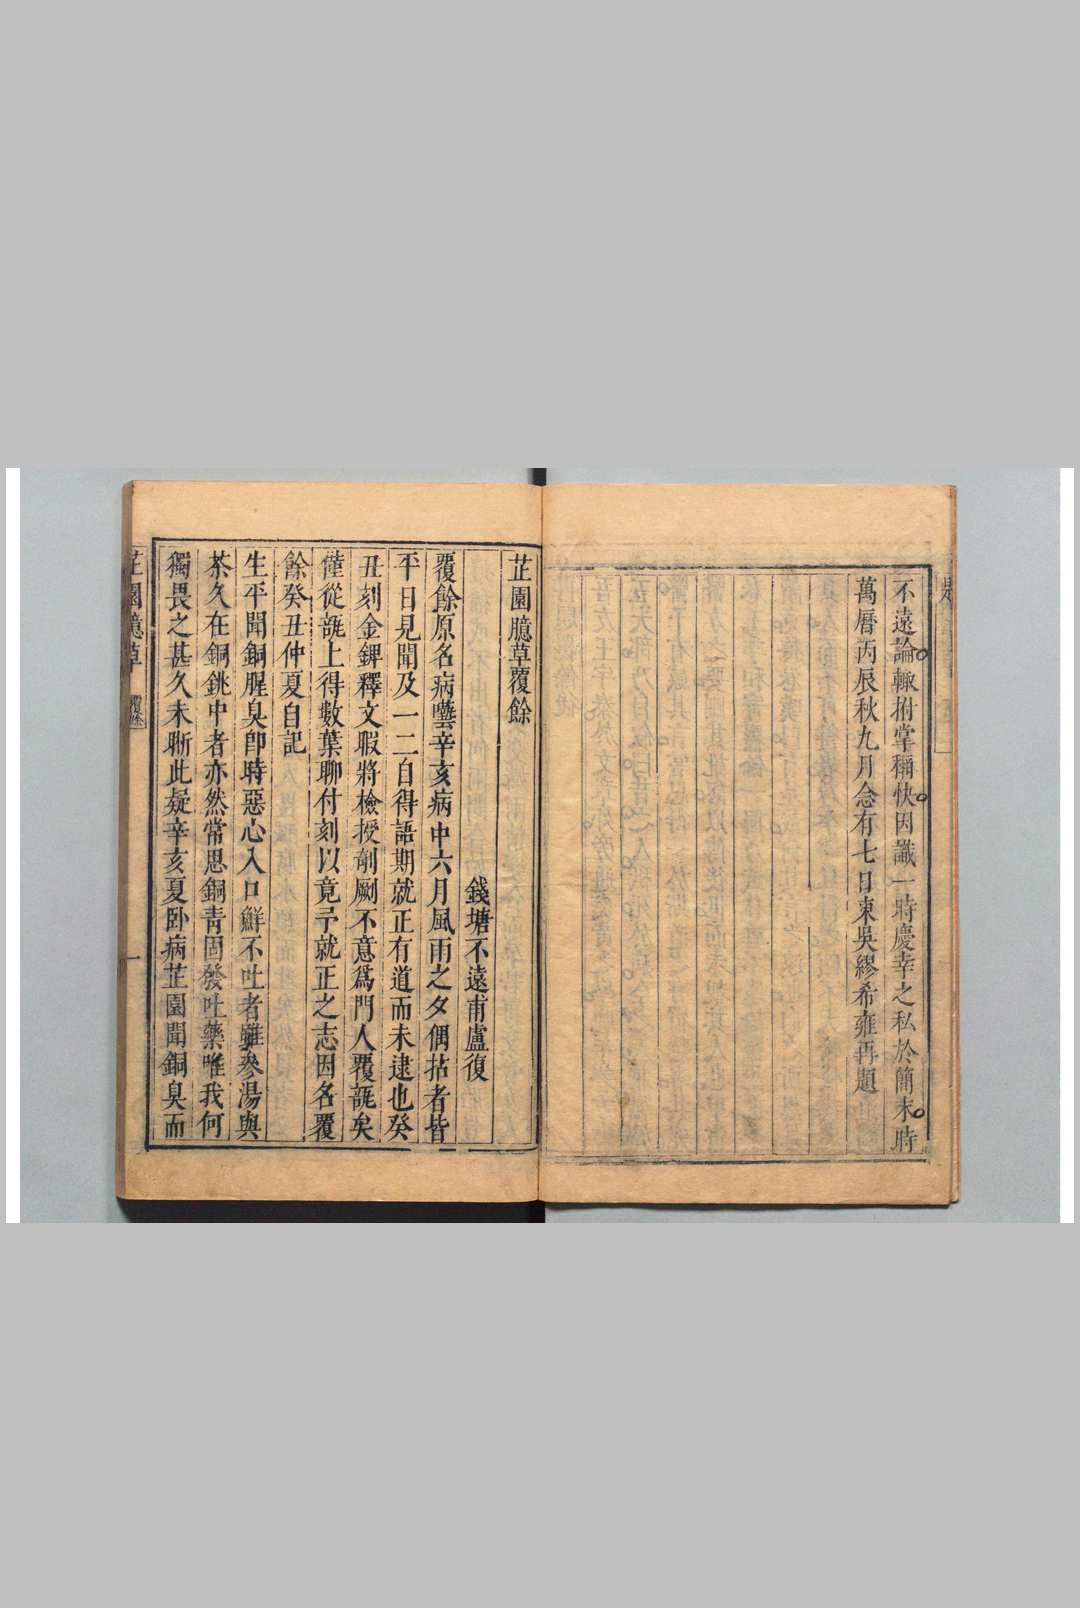 不遠論輙拊掌稱快因識一時慶幸之私於簡末時
萬曆丙辰秋九月念有七日東吳繆希雍再題
芷園臆草覆餘
錢塘不遠甫盧復
覆餘原名病囈辛亥病中六月風雨之夕偶拈者皆
平日見聞及一二自得語期就正有道而未逮也癸
丑刻金錍釋文暇將檢授剞劂不意爲門人覆瓿矣
僅從瓿上得數葉聊付刻以竟予就正之志因名覆
餘癸丑仲夏自記
生平聞銅腥臭卽時惡心入口鮮不吐者雖參湯與
茶久在銅銚中者亦然常思銅青固發吐藥唯我何
獨畏之甚久未晰此疑辛亥夏卧病芷園聞銅臭而
芷園臆草
覆餘
一